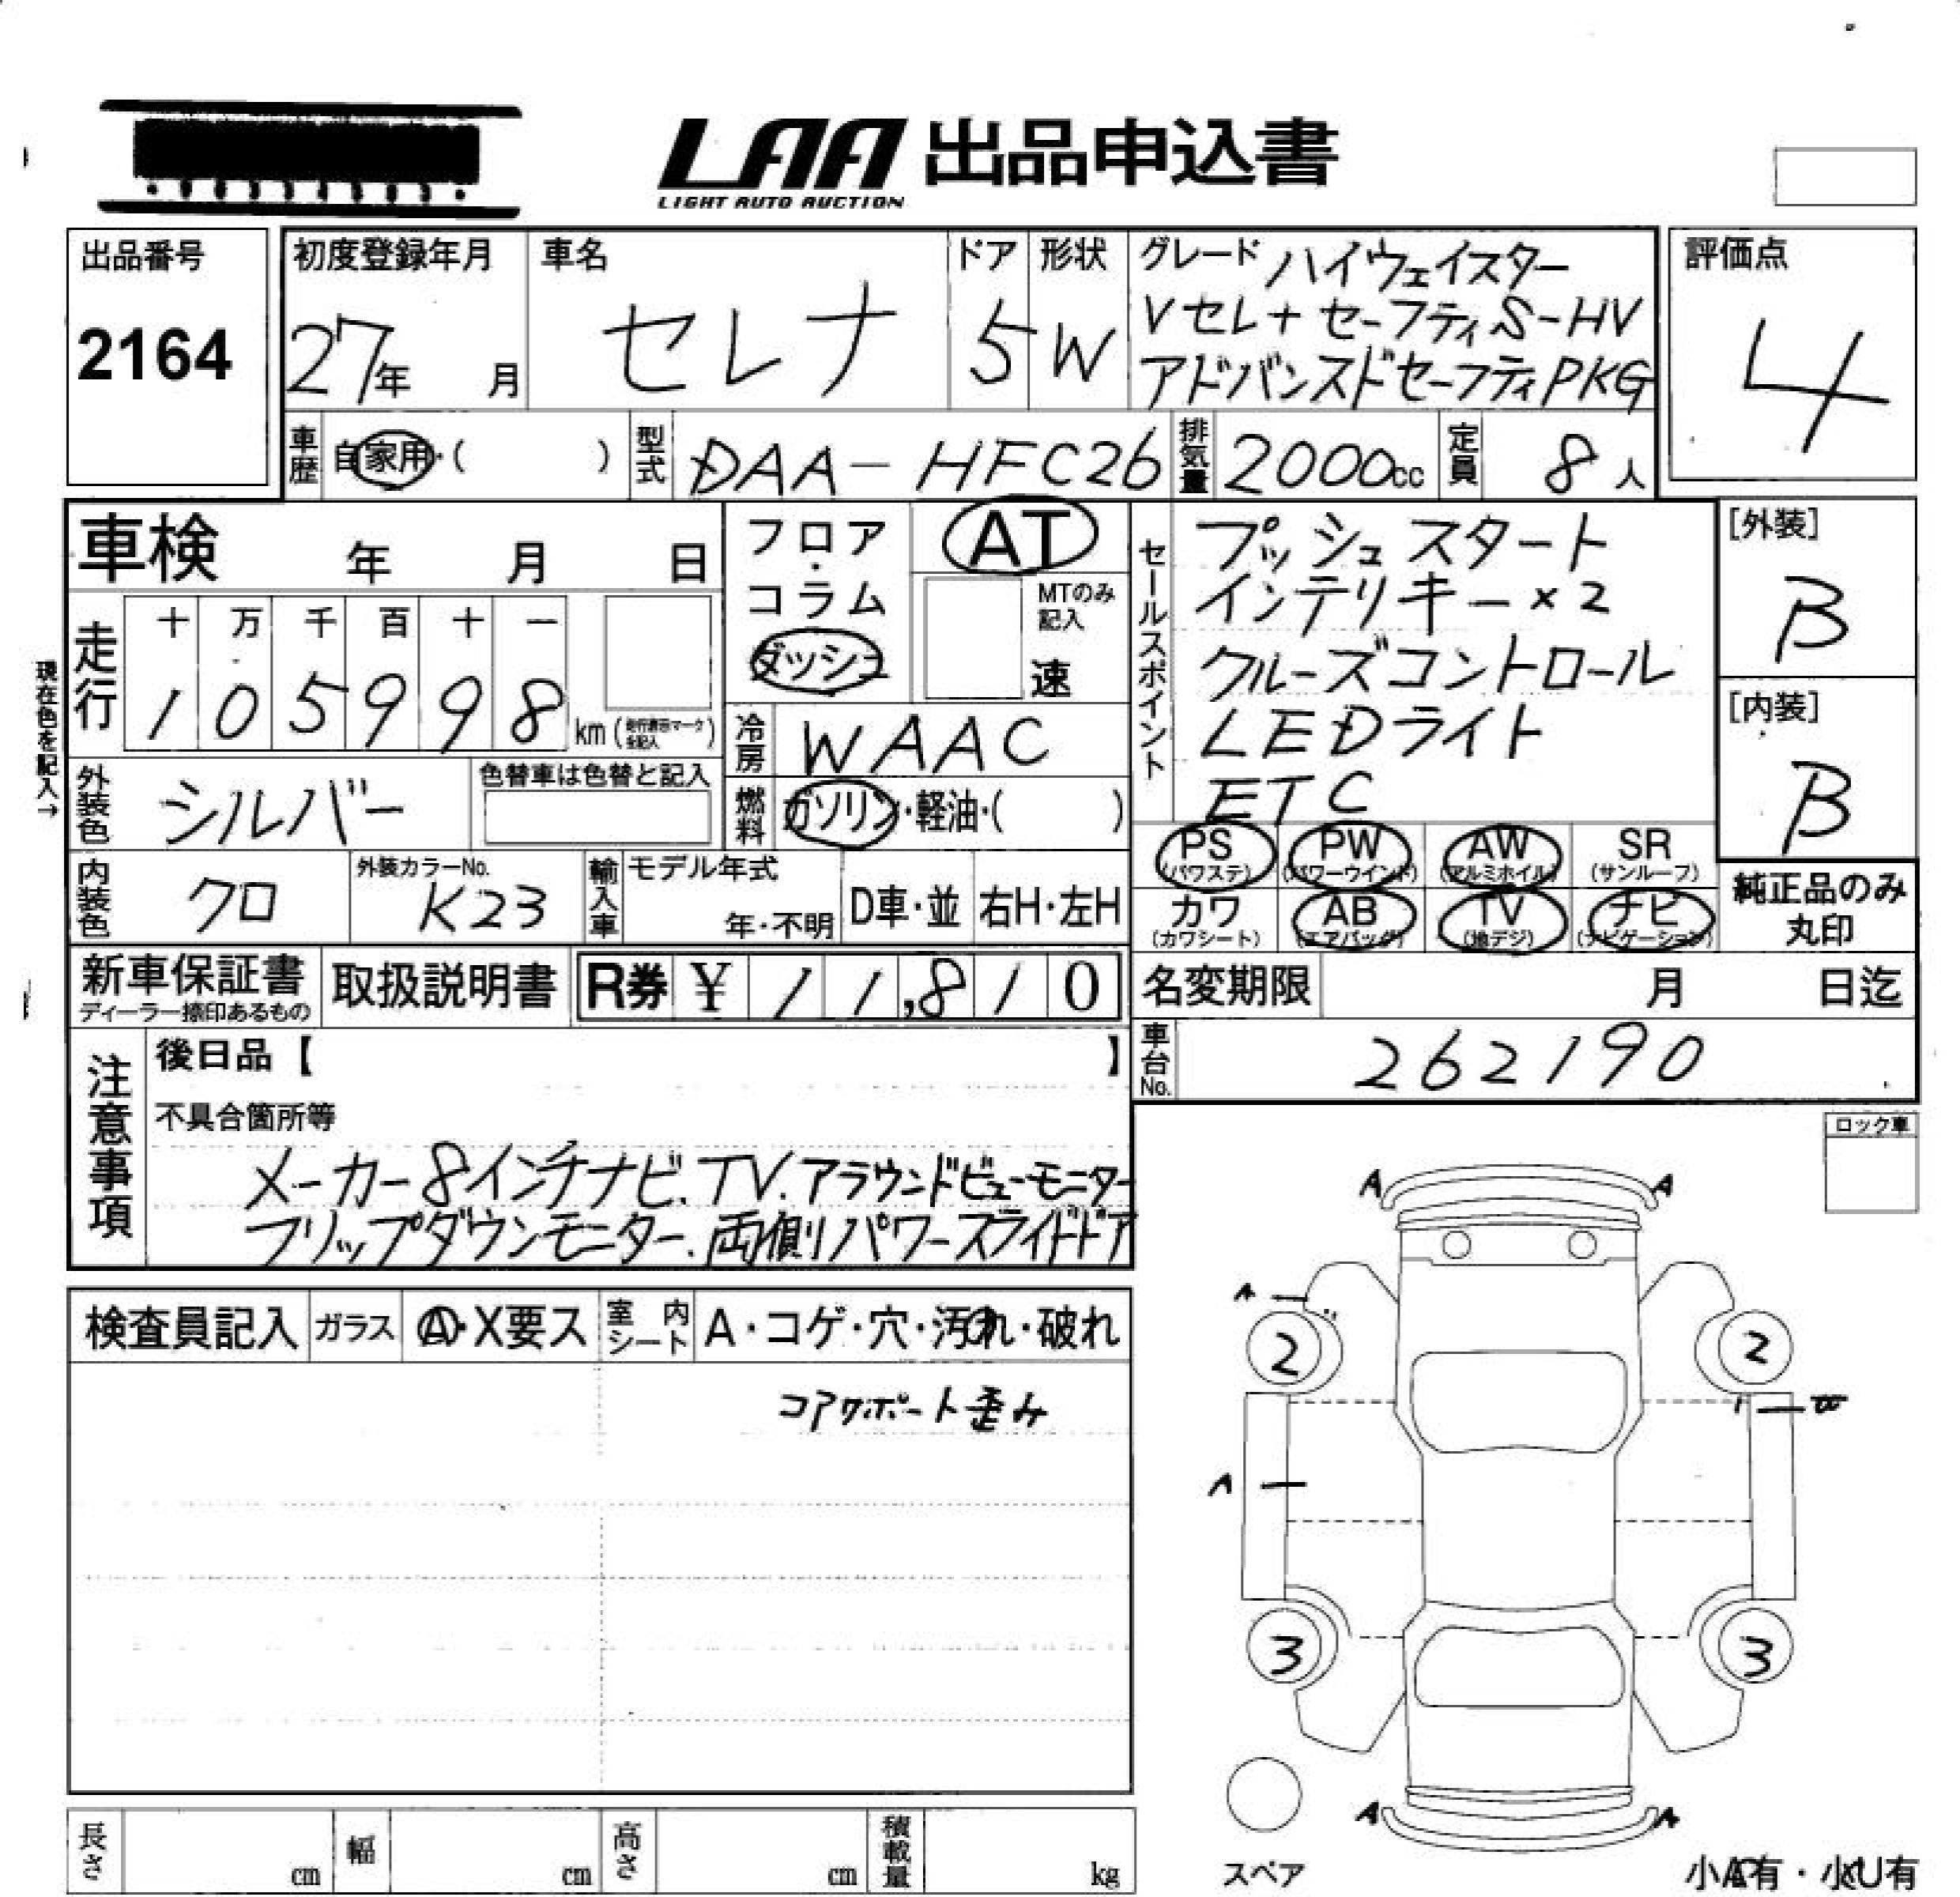 LAA 出品申込書
LIGHT AUTO AUCTION
出品番号
2164
初度登録年月
27年 月
車名
セレナ
ドア
5
形状
W
グレード ハイウェイスター
Vセレ+セーフティS-HV
アドバンスドセーフティPKG
評価点
4
車歴 自家用・( )
型式 DAA-HFC26
排気量 2000cc
定員 8人
車検 年 月 日
フロア・コラム
ダッシュ
AT
MTのみ記入
速
セールスポイント
プッシュスタート
インテリキー×2
クルーズコントロール
LEDライト
ETC
[外装]
B
[内装]
B
現在色を記入→
走行
十 万 千 百 十 一
1 0 5 9 9 8 km
冷房 WAAC
外装色 シルバー
色替車は色替と記入
燃料 ガソリン・軽油・( )
PS (パワステ) PW (パワーウインド) AW (アルミホイル) SR (サンルーフ)
カワ (カワシート) AB (エアバッグ) TV (地デジ) ナビ (ナビゲーション)
純正品のみ
丸印
内装色 クロ
外装カラーNo.
K23
輸入車
モデル年式
年・不明
D車・並
右H・左H
新車保証書
ディーラー捺印あるもの
取扱説明書
R券 ¥ 11,810
名変期限 月 日迄
車台No. 262190
注意事項
後日品【 】
不具合箇所等
メーカー8インチナビ.TV.アラウンドビューモニター
フリップダウンモニター.両側パワースライドドア
ロック車
検査員記入 ガラス A・X要ス 室内シート A・コゲ・穴・汚れ・破れ
コアサポート歪み
A A
A
2 2
A
3 3
A A
スペア
小A有・小U有
長さ cm 幅 cm 高さ cm 積載量 kg